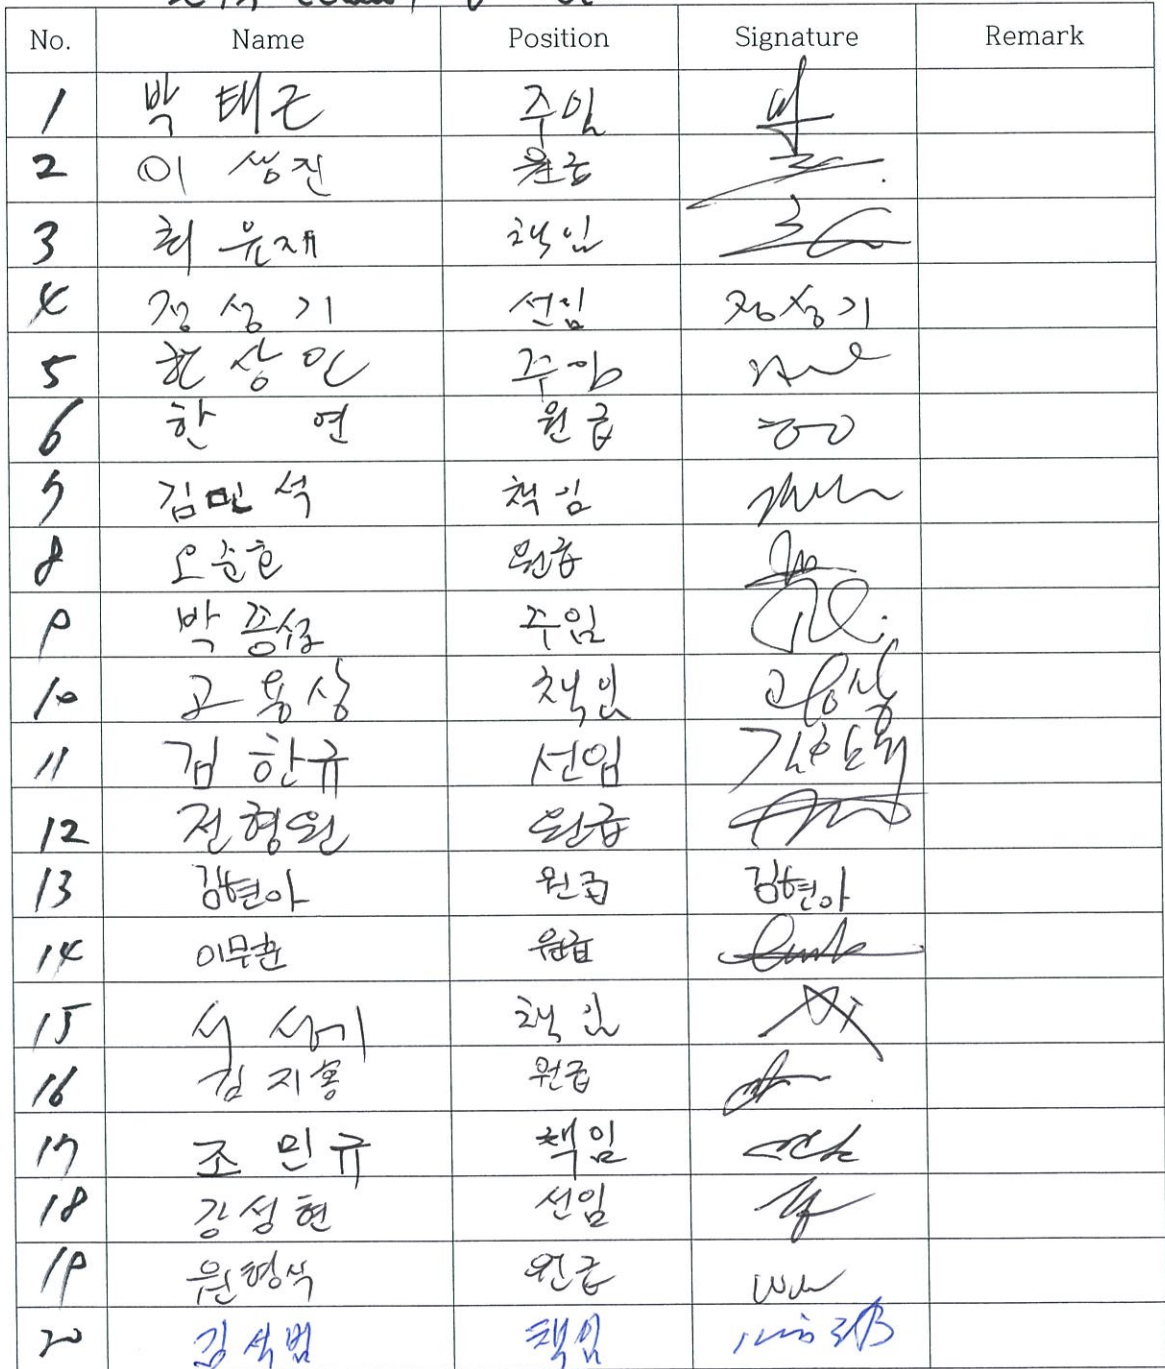 No. Name Position Signature Remark
1 박 태근 주임
2 이 상진 원급
3 최 윤재 책임
4 정 상 기 선임 정상기
5 현 상 인 주임
6 한 연 원급
7 김민석 책임
8 오준호 원급
9 박 종성 주임
10 고 용 상 책임 고용상
11 김 한규 선임 김한규
12 전형원 원급
13 김현아 원급 김현아
14 이무훈 원급
15 서 성기 책임
16 김 지홍 원급
17 조 민규 책임
18 강성현 선임
19 원형식 원급
20 김석범 책임